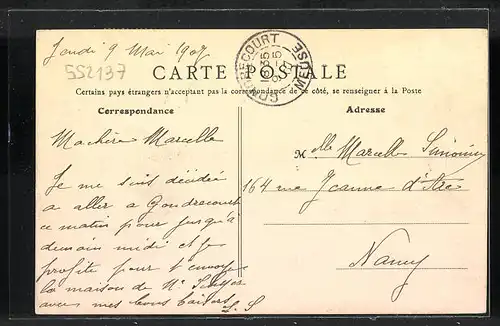 Jeudi 9 Mai 1907
552137
GONDRECOURT
MEUSE
CARTE POSTALE
Certains pays étrangers n'acceptant pas la correspondance de ce côté, se renseigner à la Poste
Correspondance
Adresse
Ma chère Marcelle
Je me suis décidée
a aller a Gondrecourt
ce matin pour jusqu'à
demain midi et je
profite pour t'envoyer
la maison de Mr
avec mes bons baisers
Melle Marcelle
164 rue Jeanne d'Arc
Nancy